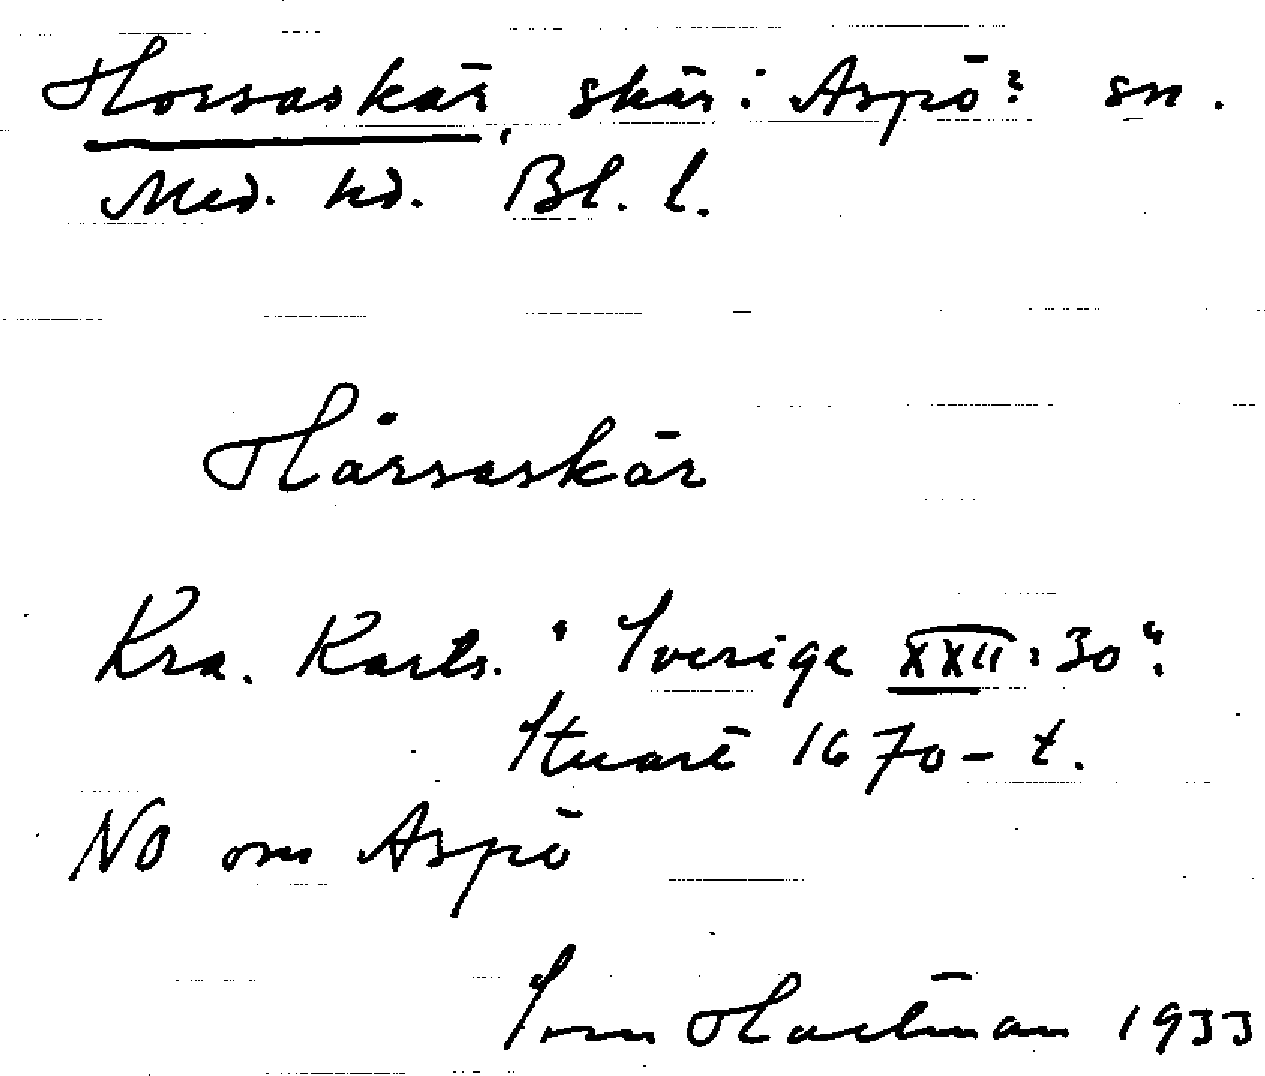 Horsaskär, skär: Aspö? sn.
Med. hd. Bl. l.
Hårsaskär
Kra. Karts. "Sverige XXII:30".
Stuart 1670-t.
NO om Aspö
Sven Hartman 1933